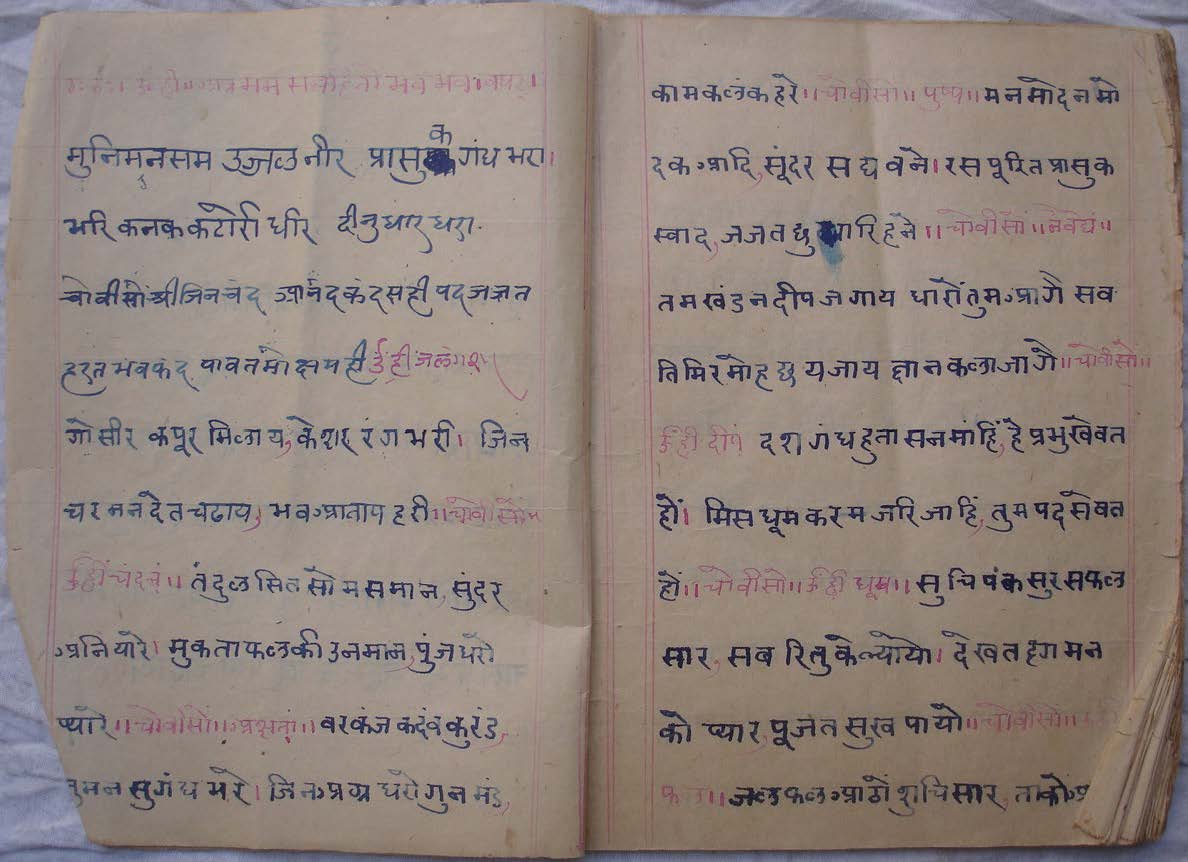 मम स भव भव वषट्।
मुनिमनसम उजल नीर प्रासुक गंध भरा।
भरि कनक कटोरी धीर दीनु धार धरा.
चोवीसों श्री जिनचंद आनंदकंद सही पद जजत
हरत भवफंद पावत मोक्ष मही ॐ ह्रीं जलं
गोसीर कपूर मिलाय, केशर रंग भरी। जिन
चरनन देत चढाय, भव आताप हरी ।।चोवीसों।।
ॐ ह्रीं चंदनं।। तंदुल सित सोम समान, सुंदर
अनियारे। मुकताफलकी उनमान, पुंज धरो
प्यारे।।चोवीसों।।अक्षतां।। वर कंज कदंब कुरंड,
सुमन सुगंध भरे। जिन अग्र धरों गुन मंड,
काम कलंक हरे।।चोवीसों।। पुष्पं।। मन मोदन मो
दक आदि, सुंदर सद्य बने। रस पूरित प्रासुक
स्वाद, जजत छु हने ।।चोवीसों।।नैवेद्यं।।
तम खंडन दीप जगाय धारों तुम आगै सब
तिमिर मोह छय जाय ज्ञान कला जागै।।चोवीसों।।
ॐ ह्रीं दीपं दश गंध हुतासन मांहिं, हे प्रभु खेवत
हों। मिस धूम करम जरि जाहिं, तुम पद सेवत
हों।।चोवीसों।।ॐ ह्रीं धूपं।। सुचि पंक सुरस फल
सार, सब रितु के ल्यायो। देखत द्रग मन
को प्यार, पूजत सुख पायो।।चोवीसों।।
फलं।। जल फल आठों शुचि सार, ताको अ